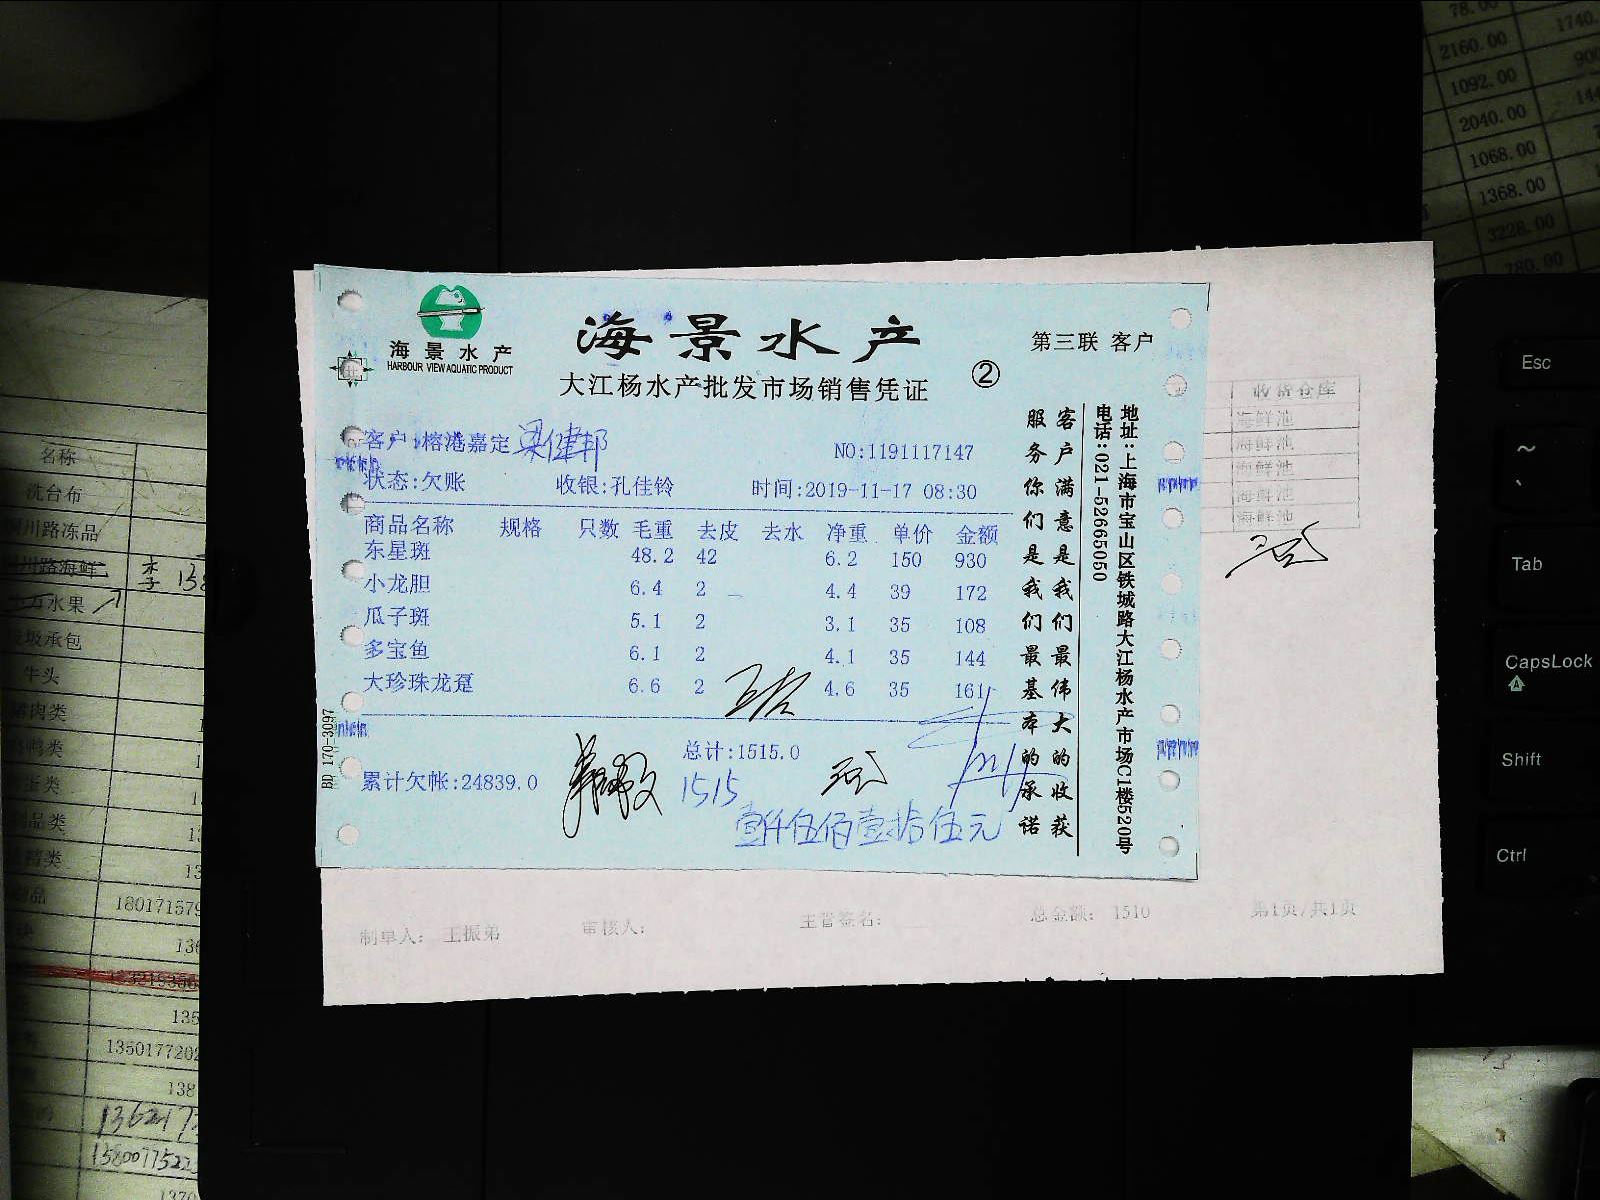 海景水产
HARBOUR VIEW AQUATIC PRODUCT
海景水产
大江杨水产批发市场销售凭证
②
第三联 客户
客户:榕港嘉定 梁健邦
NO:1191117147
状态:欠账 收银:孔佳铃 时间:2019-11-17 08:30
商品名称 规格 只数 毛重 去皮 去水 净重 单价 金额
东星斑 48.2 42 6.2 150 930
小龙胆 6.4 2 4.4 39 172
瓜子斑 5.1 2 3.1 35 108
多宝鱼 6.1 2 4.1 35 144
大珍珠龙趸 6.6 2 4.6 35 161
总计:1515.0
累计欠帐:24839.0
1515
壹仟伍佰壹拾伍元
客户满意是我们最伟大的收获
服务你们是我们最基本的承诺
地址:上海市宝山区铁城路大江杨水产市场C1楼520号
电话:021-52665050
BD 170-3097
收货仓库
海鲜池
海鲜池
海鲜池
海鲜池
海鲜池
制单人: 王振弟 审核人: 主管签名: 总金额: 1510 第1页/共1页
名称
洗台布
川路冻品
川路海鲜 李 138
水果
圾承包
牛头
肉类
鸭类
类
品类
类
品
180171579
136
135
135017720
138
1362172
1580077522
1370
78.00
2160.00 1740.
1092.00 900
2040.00 144
1068.00
1368.00
3228.00
780.00
Esc
~
Tab
CapsLock
A
Shift
Ctrl